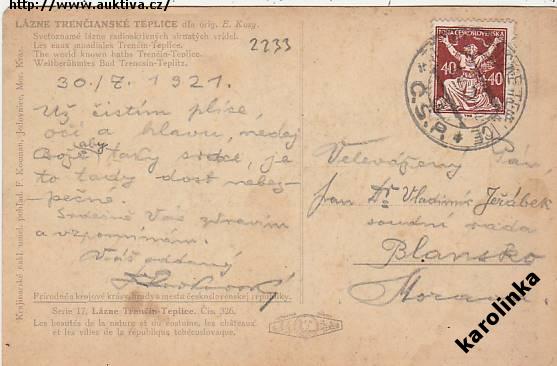 http://www.auktiva.cz/
LÁZNE TRENČIANSKÉ TEPLICE dla orig. E. Kosy.
Svetoznámé lázne radioaktivných sirnatých vriдel.
Les eaux mondiales Trenčín-Teplice.
The world known baths Trenčín-Teplice.
Weltberühmtes Bad Trencsin-Teplitz.
2233
30./7. 1921.
Už čistím plíce,
oči a hlavu, nedej
Bože aby taky srdce, je
to tady dost nebez-
pečné.
Srdečně Vás zdravím
a vzpomínám.
Váš oddaný
POŠTA ČESKOSLOVENSKÁ
40 40
* Č.S.P. *
Velevážený Pán,
pan Dr Vladimír Jeřábek
soudní rada
Blansko
Morava
Krajinárské nakl. umel. pohlad. F. Kooman, Jedovnice, Mor. Kras.
Prírodné a krojové krásy, hrady a mesta československej republiky.
Serie 17, Lázne Trenčín-Teplice. Čís. 326.
Les beautés de la nature et du costume, les châteaux
et les villes de la république tchécoslovaque.
karolinka